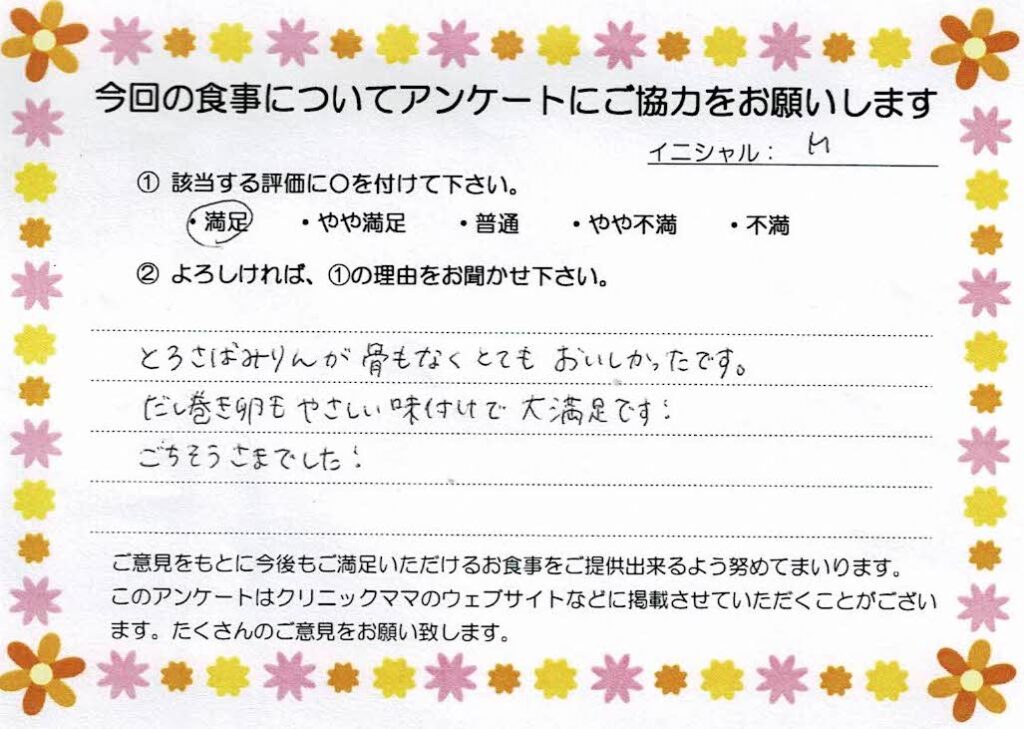 今回の食事についてアンケートにご協力をお願いします
イニシャル： M
① 該当する評価に〇を付けて下さい。
・満足 ・やや満足 ・普通 ・やや不満 ・不満
② よろしければ、①の理由をお聞かせ下さい。
とろさばみりんが骨もなくとてもおいしかったです。
だし巻き卵もやさしい味付けで大満足です!
ごちそうさまでした!
ご意見をもとに今後もご満足いただけるお食事をご提供出来るよう努めてまいります。
このアンケートはクリニックママのウェブサイトなどに掲載させていただくことがござい
ます。たくさんのご意見をお願い致します。